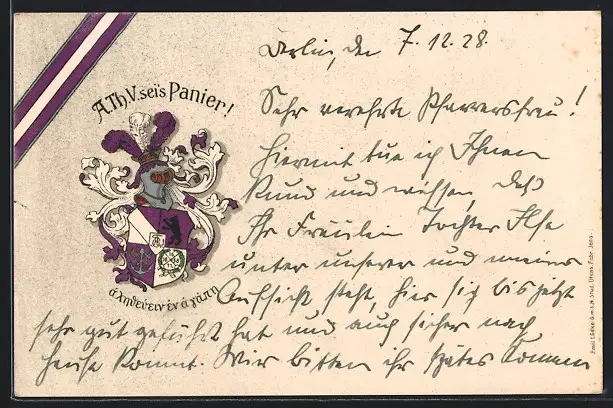 A.Th.V. sei's Panier!
ἀληθεύειν ἐν ἀγάπῃ
Berlin, den 7.12.28.
Sehr verehrte Pfarrersfrau!
Hiermit tue ich Ihnen
Kund und wissen, daß
Ihr Fräulein Tochter Ilse
unter unserer und meiner
Aufsicht steht, hier sich bis jetzt
sehr gut geführt hat und auch sicher nach
Hause kommt. Wir bitten ihr spätes Kommen
Emil Lüdke G.m.b.H. Stud. Utens. Fabr. Jena.